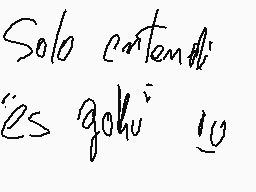 Solo entendi
"es goku" :v